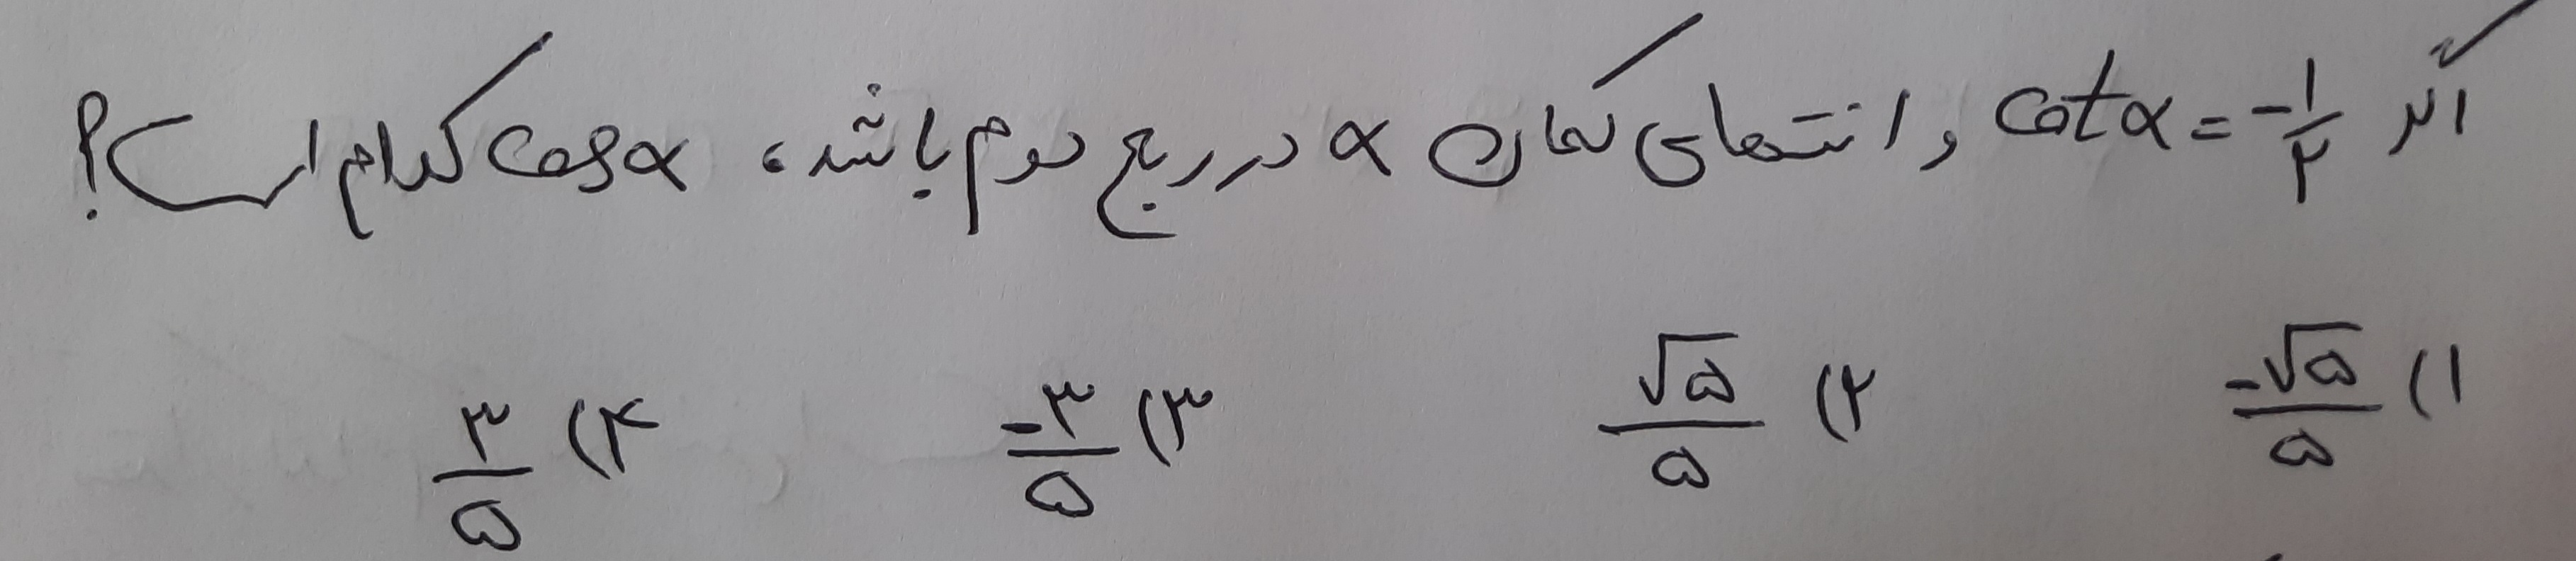 اگر cotα = -۱/۲ و انتهای کمان α در ربع دوم باشد، cosα کدام است؟
۱) -√۵/۵ ۲) √۵/۵ ۳) -۳/۵ ۴) ۳/۵